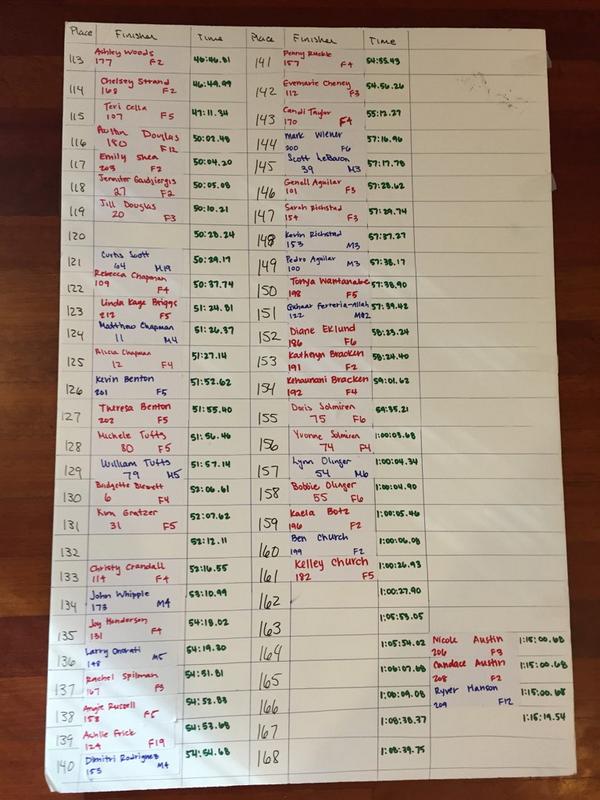 Place Finisher Time Place Finisher Time
113 Ashley Woods 177 F2 46:46.81
114 Chelsey Strand 168 F2 46:49.99
115 Teri Cella 107 F5 47:11.34
116 Austin Douglas 180 F12 50:02.48
117 Emily Shea 203 F2 50:04.20
118 Jennifer 27 F2 50:05.08
119 Jill Douglas 20 F3 50:10.21
120 50:28.24
121 Curtis Scott 64 M19 50:29.17
122 Rebecca Chapman 109 F4 50:37.74
123 Linda Kaye Briggs 212 F5 51:24.81
124 Matthew Chapman 11 M4 51:26.37
125 Alicia Chapman 12 F4 51:27.14
126 Kevin Benton 201 F5 51:52.62
127 Theresa Benton 202 F5 51:55.40
128 Michele Tufts 80 F5 51:56.46
129 William Tufts 79 M5 51:57.14
130 Bridgette 6 F4 52:06.61
131 Kim Gratzer 31 F5 52:07.62
132 52:12.11
133 Christy Crandall 114 F4 52:16.55
134 John Whipple 173 M4 53:10.99
135 Joy Henderson 131 F4 54:18.02
136 Larry Onorati 148 M5 54:19.30
137 Rachel Spilman 167 F3 54:51.81
138 Angie Russell 158 F5 54:52.83
139 Achlie Frick 124 F19 54:53.68
140 Dimitri Rodriguez 155 M4 54:54.68
141 Penny Ruckle 157 F4 54:55.43
142 Evemarie Cheney 112 F3 54:56.26
143 Candi Taylor 170 F4 55:12.27
144 Mark Wiener 200 F6 57:16.96
145 Scott LeBaron 39 M3 57:17.78
146 Genell Aguilar 101 F3 57:28.62
147 Sarah Richstad 154 F3 57:29.74
148 Kevin Richstad 153 M3 57:37.27
149 Pedro Aguilar 100 M3 57:38.17
150 Tonya Wantanabe 198 F5 57:38.90
151 122 M02 57:39.42
152 Diane Eklund 186 F6 58:23.24
153 Katheryn Bracken 191 F2 58:24.40
154 Kehaunani Bracken 192 F4 59:01.62
155 Doris Solmiren 75 F6 59:35.21
156 Yvonne Solmiren 74 F4 1:00:03.68
157 Lynn Olinger 54 M6 1:00:04.34
158 Bobbie Olinger 55 F6 1:00:04.90
159 Kaela Botz 196 F2 1:00:05.46
160 Ben Church 199 F2 1:00:06.08
161 Kelley Church 182 F5 1:00:26.93
162 1:00:27.90
163 1:05:53.05
164 1:05:54.02 Nicole Austin 206 F3 1:15:00.68
165 1:06:07.68 Candace Austin 208 F2 1:15:00.68
166 1:08:09.08 Ryver Hanson 209 F12 1:15:00.68
167 1:08:38.37 1:15:19.54
168 1:08:39.75